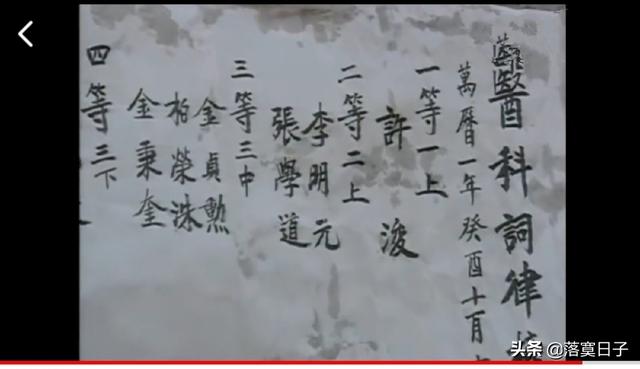 醫科詞律
萬曆一年癸酉十月
一等一上
許浚
二等二上
李明元
張學道
三等三中
金貞勲
柏榮洙
金秉奎
四等三下
头条 @落寞日子